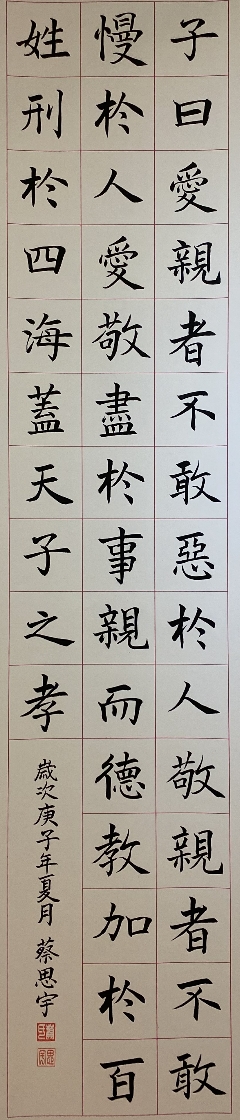 子曰愛親者不敢惡於人敬親者不敢
慢於人愛敬盡於事親而德教加於百
姓刑於四海蓋天子之孝
歲次庚子年夏月 蔡思宇